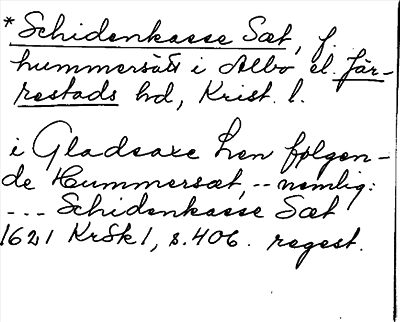 * Schidenkasse Sæt, f.
hummersätt i Albo el. Jär-
restads hd, Krist. l.
i Gladsaxe hen følgen-
de Hummersæt, -- nemlig:
--- Schidenkasse Sæt
1621 KrSk 1, s. 406. regest.